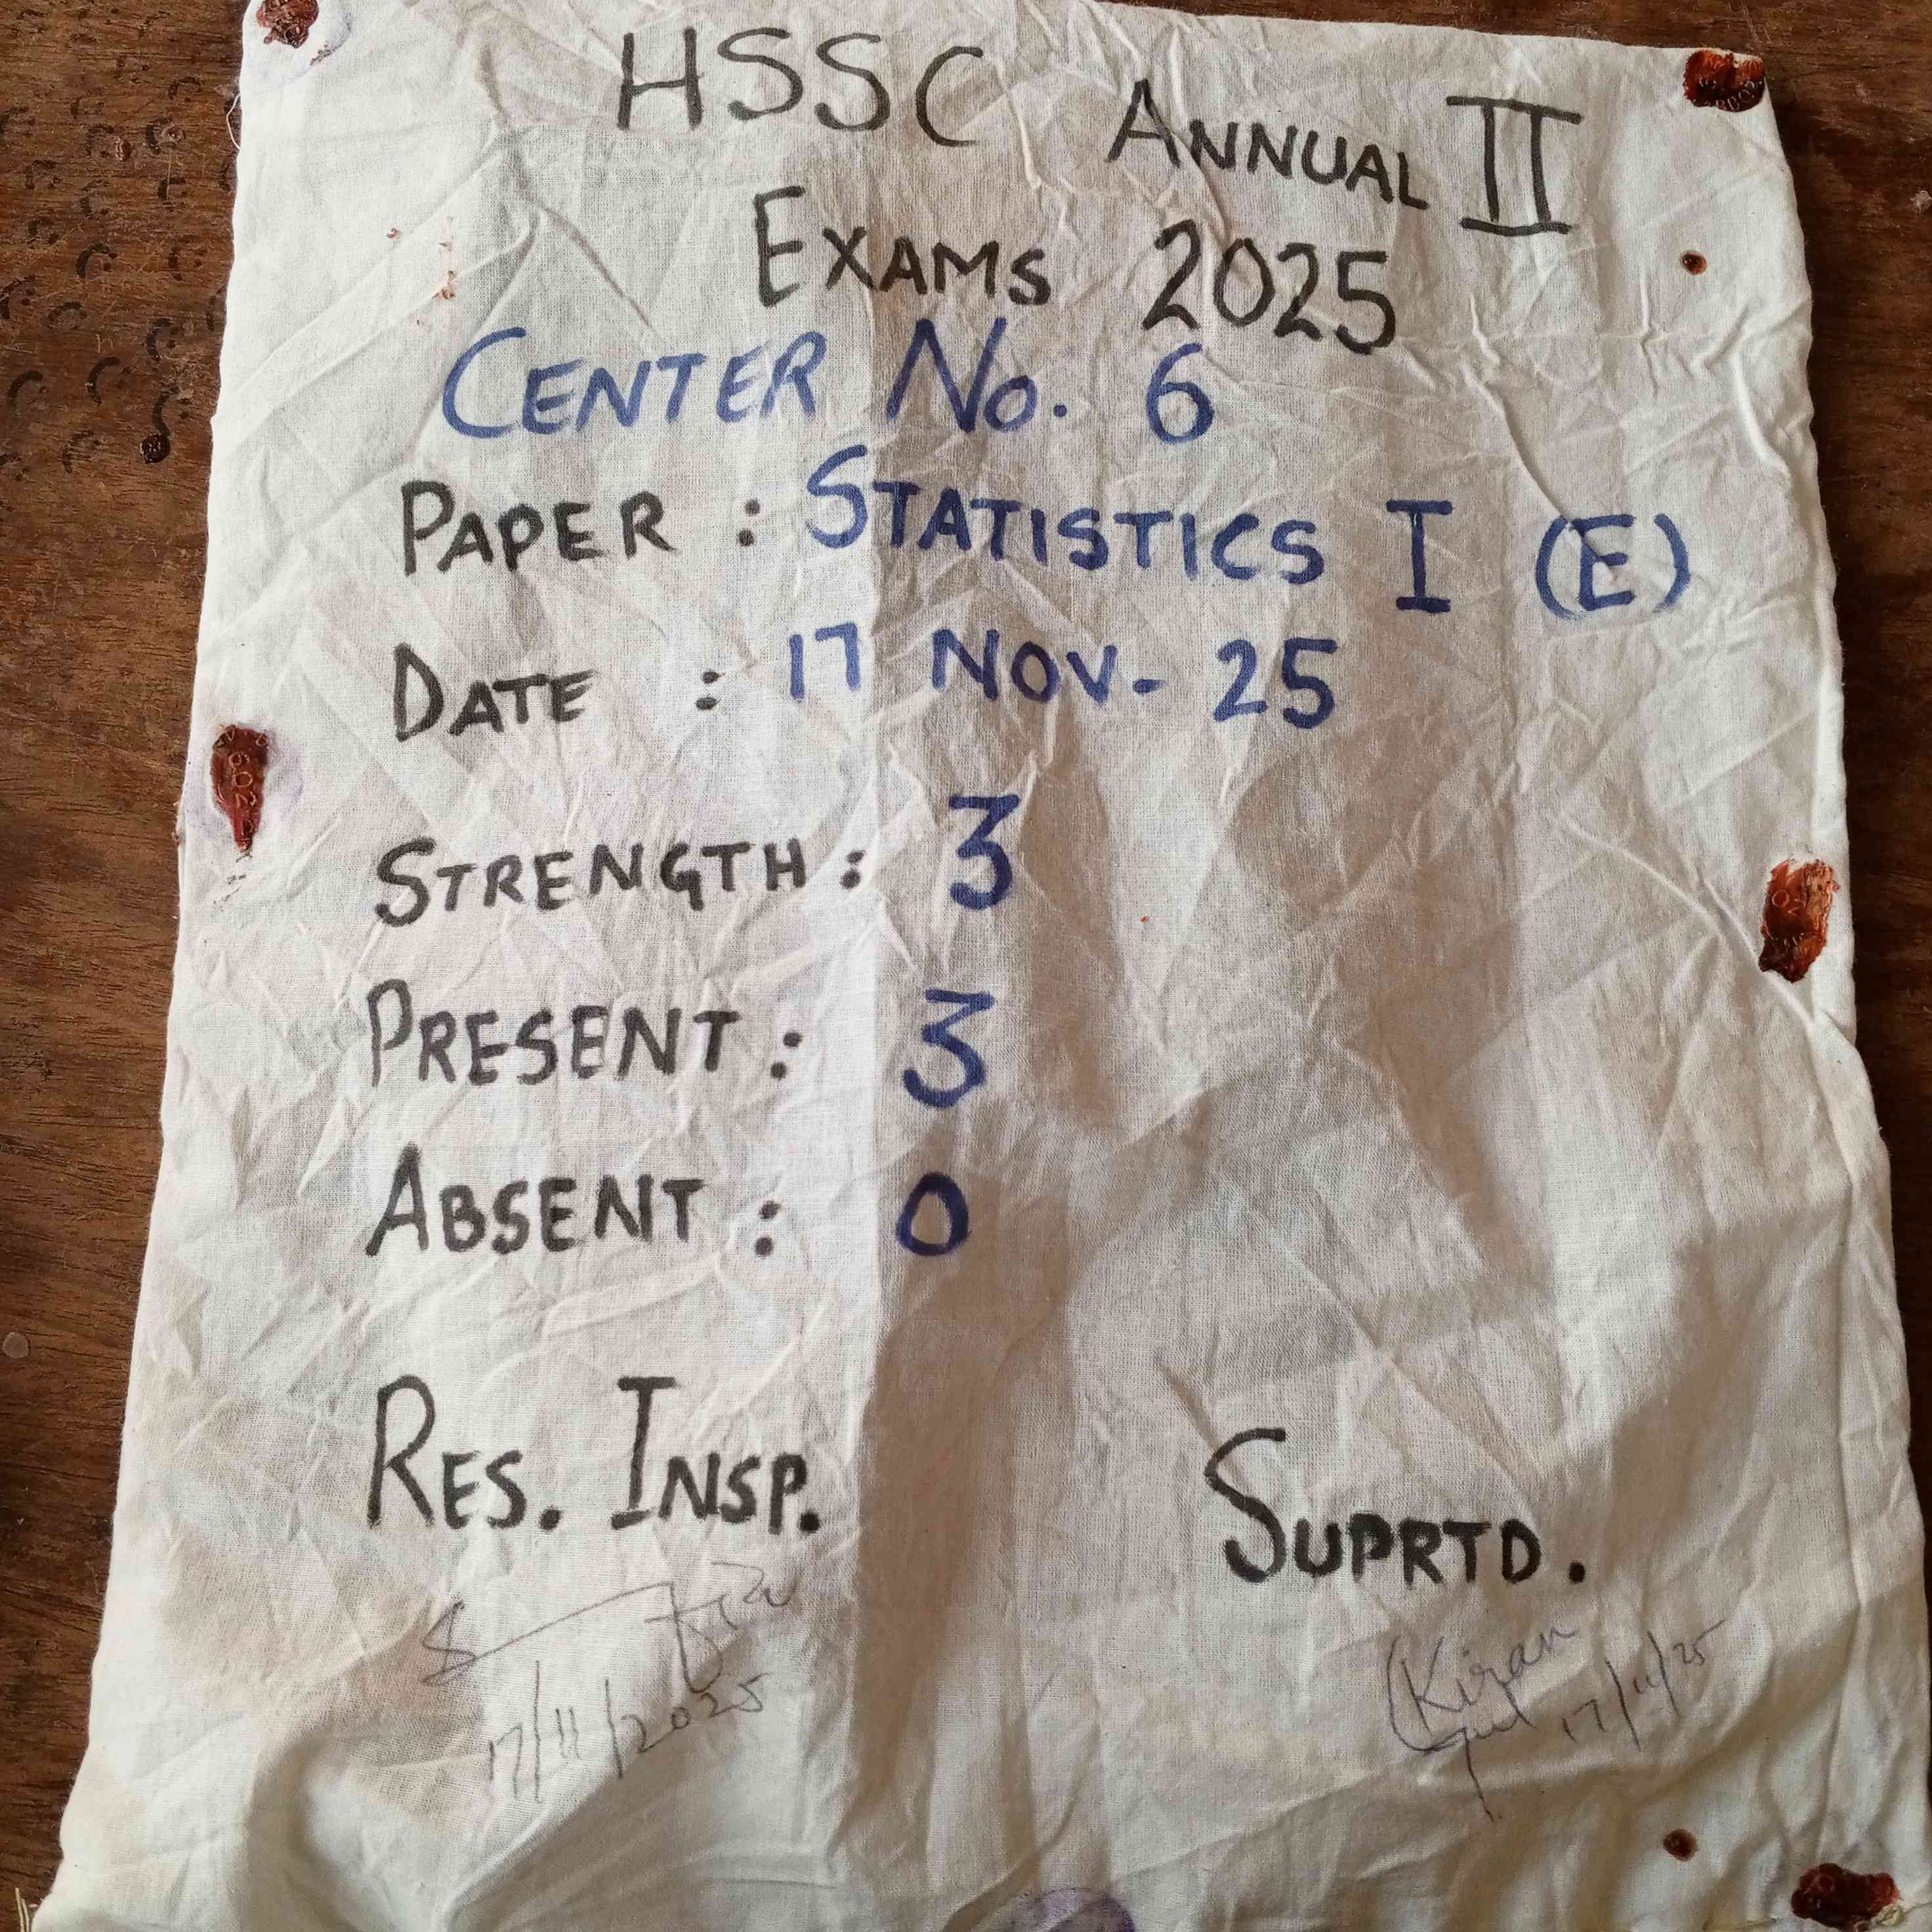 HSSC ANNUAL II
EXAMS 2025
CENTER No. 6
PAPER : STATISTICS I (E)
DATE : 17 NOV- 25
STRENGTH : 3
PRESENT : 3
ABSENT : 0
RES. INSP. SUPRTD.
17/11/2025
Kiran
17/11/25